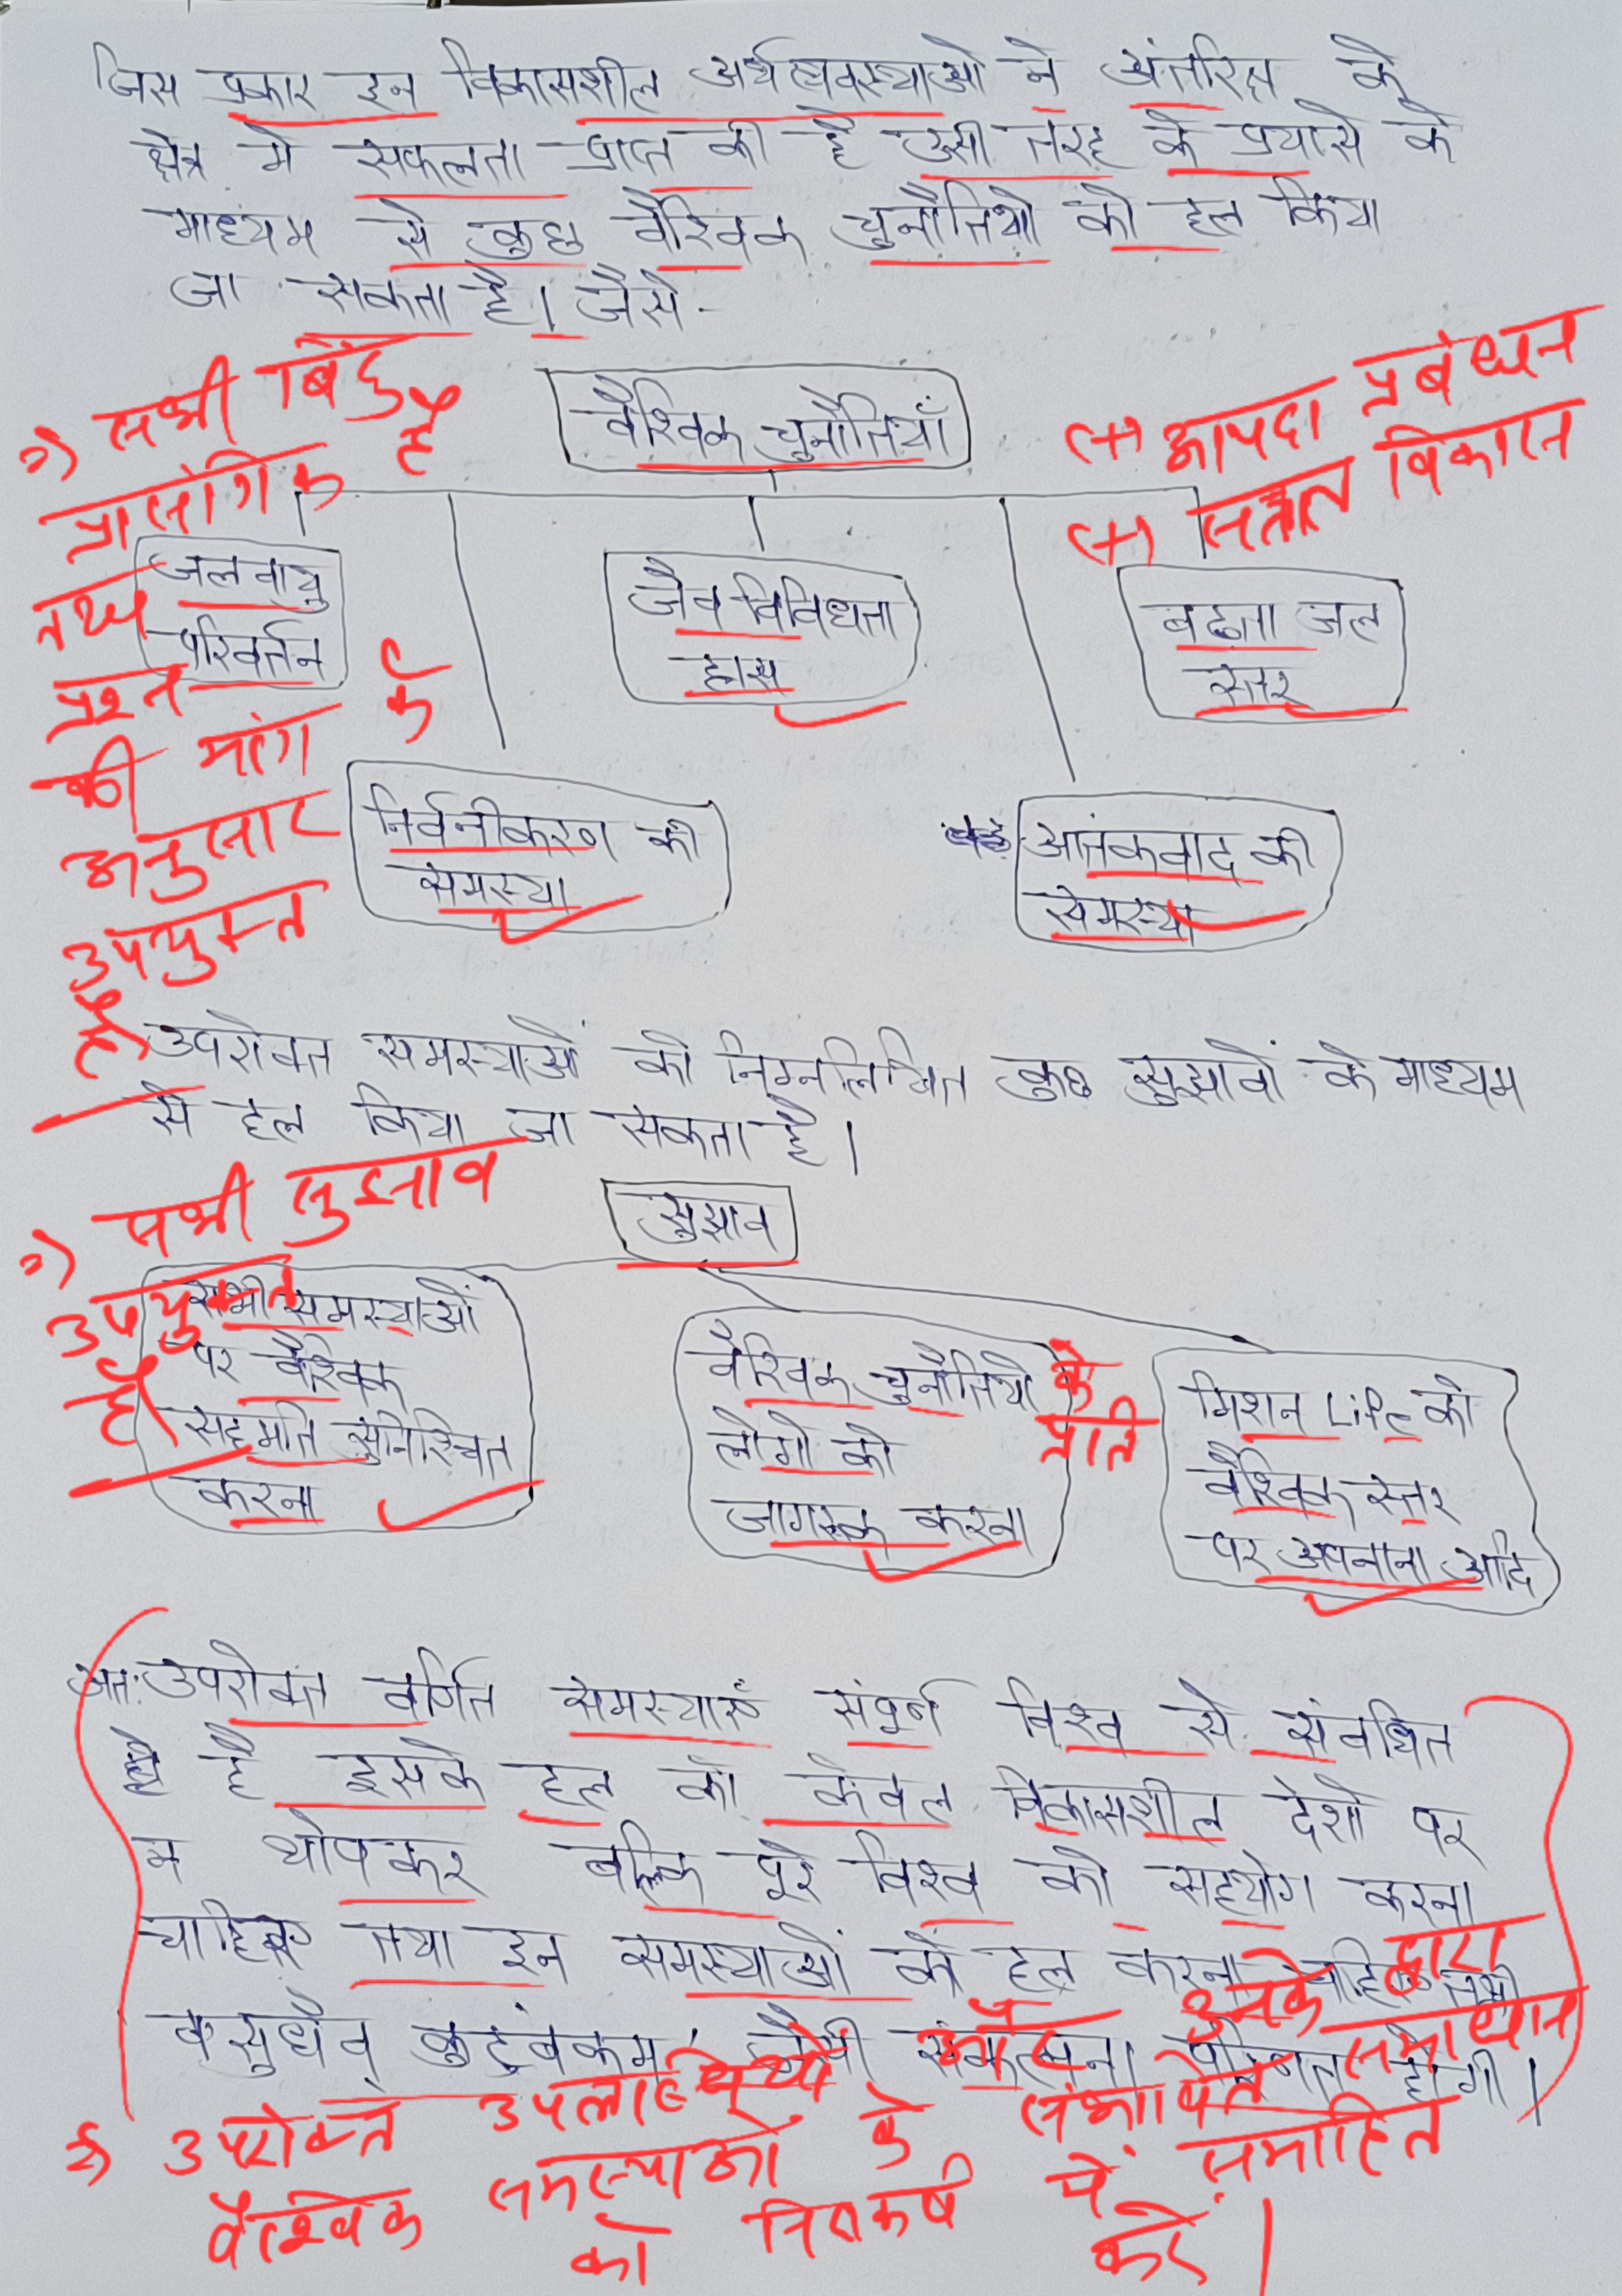 जिस प्रकार इन विकासशील अर्थव्यवस्थाओ ने अंतरिक्ष के
क्षेत्र मे सफलता प्राप्त की है उसी तरह के प्रयासो के
माध्यम से कुछ वैश्विक चुनौतियो को हल किया
जा सकता है। जैसे -
सभी बिंदु
प्रासंगिक है
तथा
प्रश्न
की मांग के
अनुसार
उपयुक्त
है
वैश्विक चुनौतियाँ
(+) आपदा प्रबंधन
(+) सतत विकास
जलवायु
परिवर्तन
जैव विविधता
ह्रास
बढ़ता जल
स्तर
निर्वनीकरण की
समस्या
आतंकवाद की
समस्या
उपरोक्त समस्याओं को निम्नलिखित कुछ सुझावों के माध्यम
से हल किया जा सकता है।
सभी सुझाव
उपयुक्त
हैं
सुझाव
सभी समस्याओं
पर वैश्विक
सहमति सुनिश्चित
करना
वैश्विक चुनौतियो के प्रति
लोगो को
जागरूक करना
मिशन Life को
वैश्विक स्तर
पर अपनाना आदि
अतः उपरोक्त वर्णित समस्याएँ संपूर्ण विश्व से संबंधित
है इसके हल को केवल विकासशील देशो पर
न थोपकर बल्कि पूरे विश्व को सहयोग करना
चाहिए तथा इन समस्याओं को हल करना चाहिए तभी
वसुधैव कुटुंबकम' जैसी संकल्पना होगी।
उपरोक्त उपलब्धियों और उनके द्वारा
वैश्विक समस्याओं के संभावित समाधान
को निष्कर्ष में समाहित
करें।